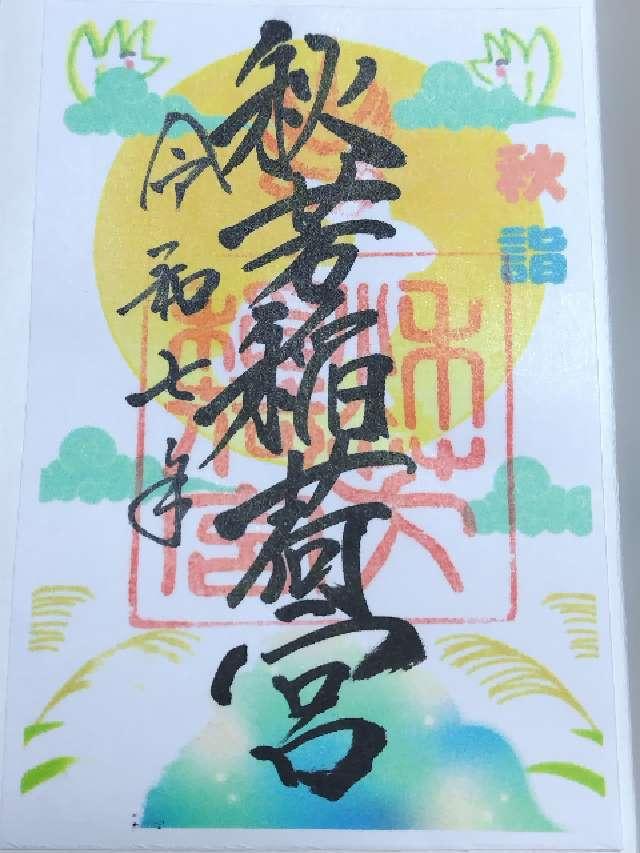 秋詣
秋若稲荷宮
令和七年